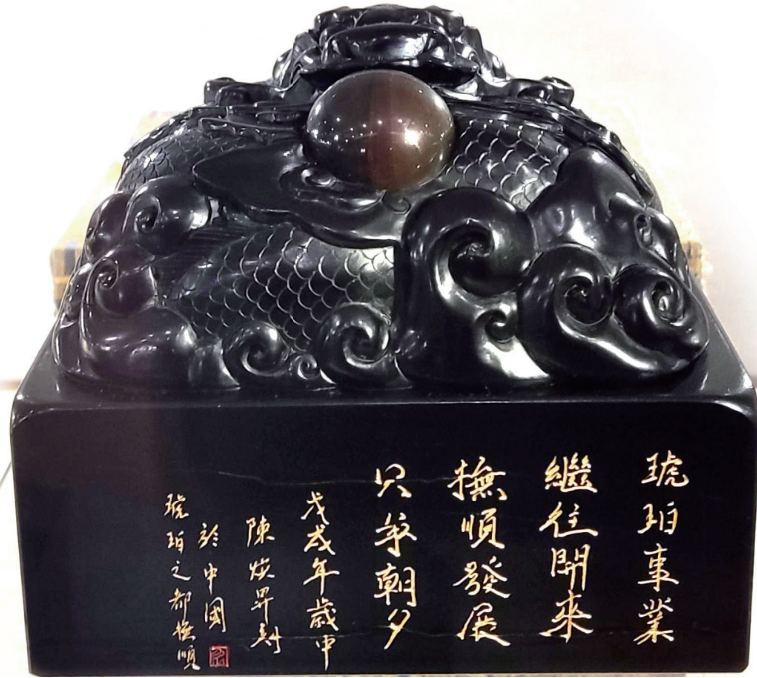 琥珀事業
繼往開來
撫順發展
只爭朝夕
戊戌年歲中
陳煥昇刻
於中國
琥珀之都撫順